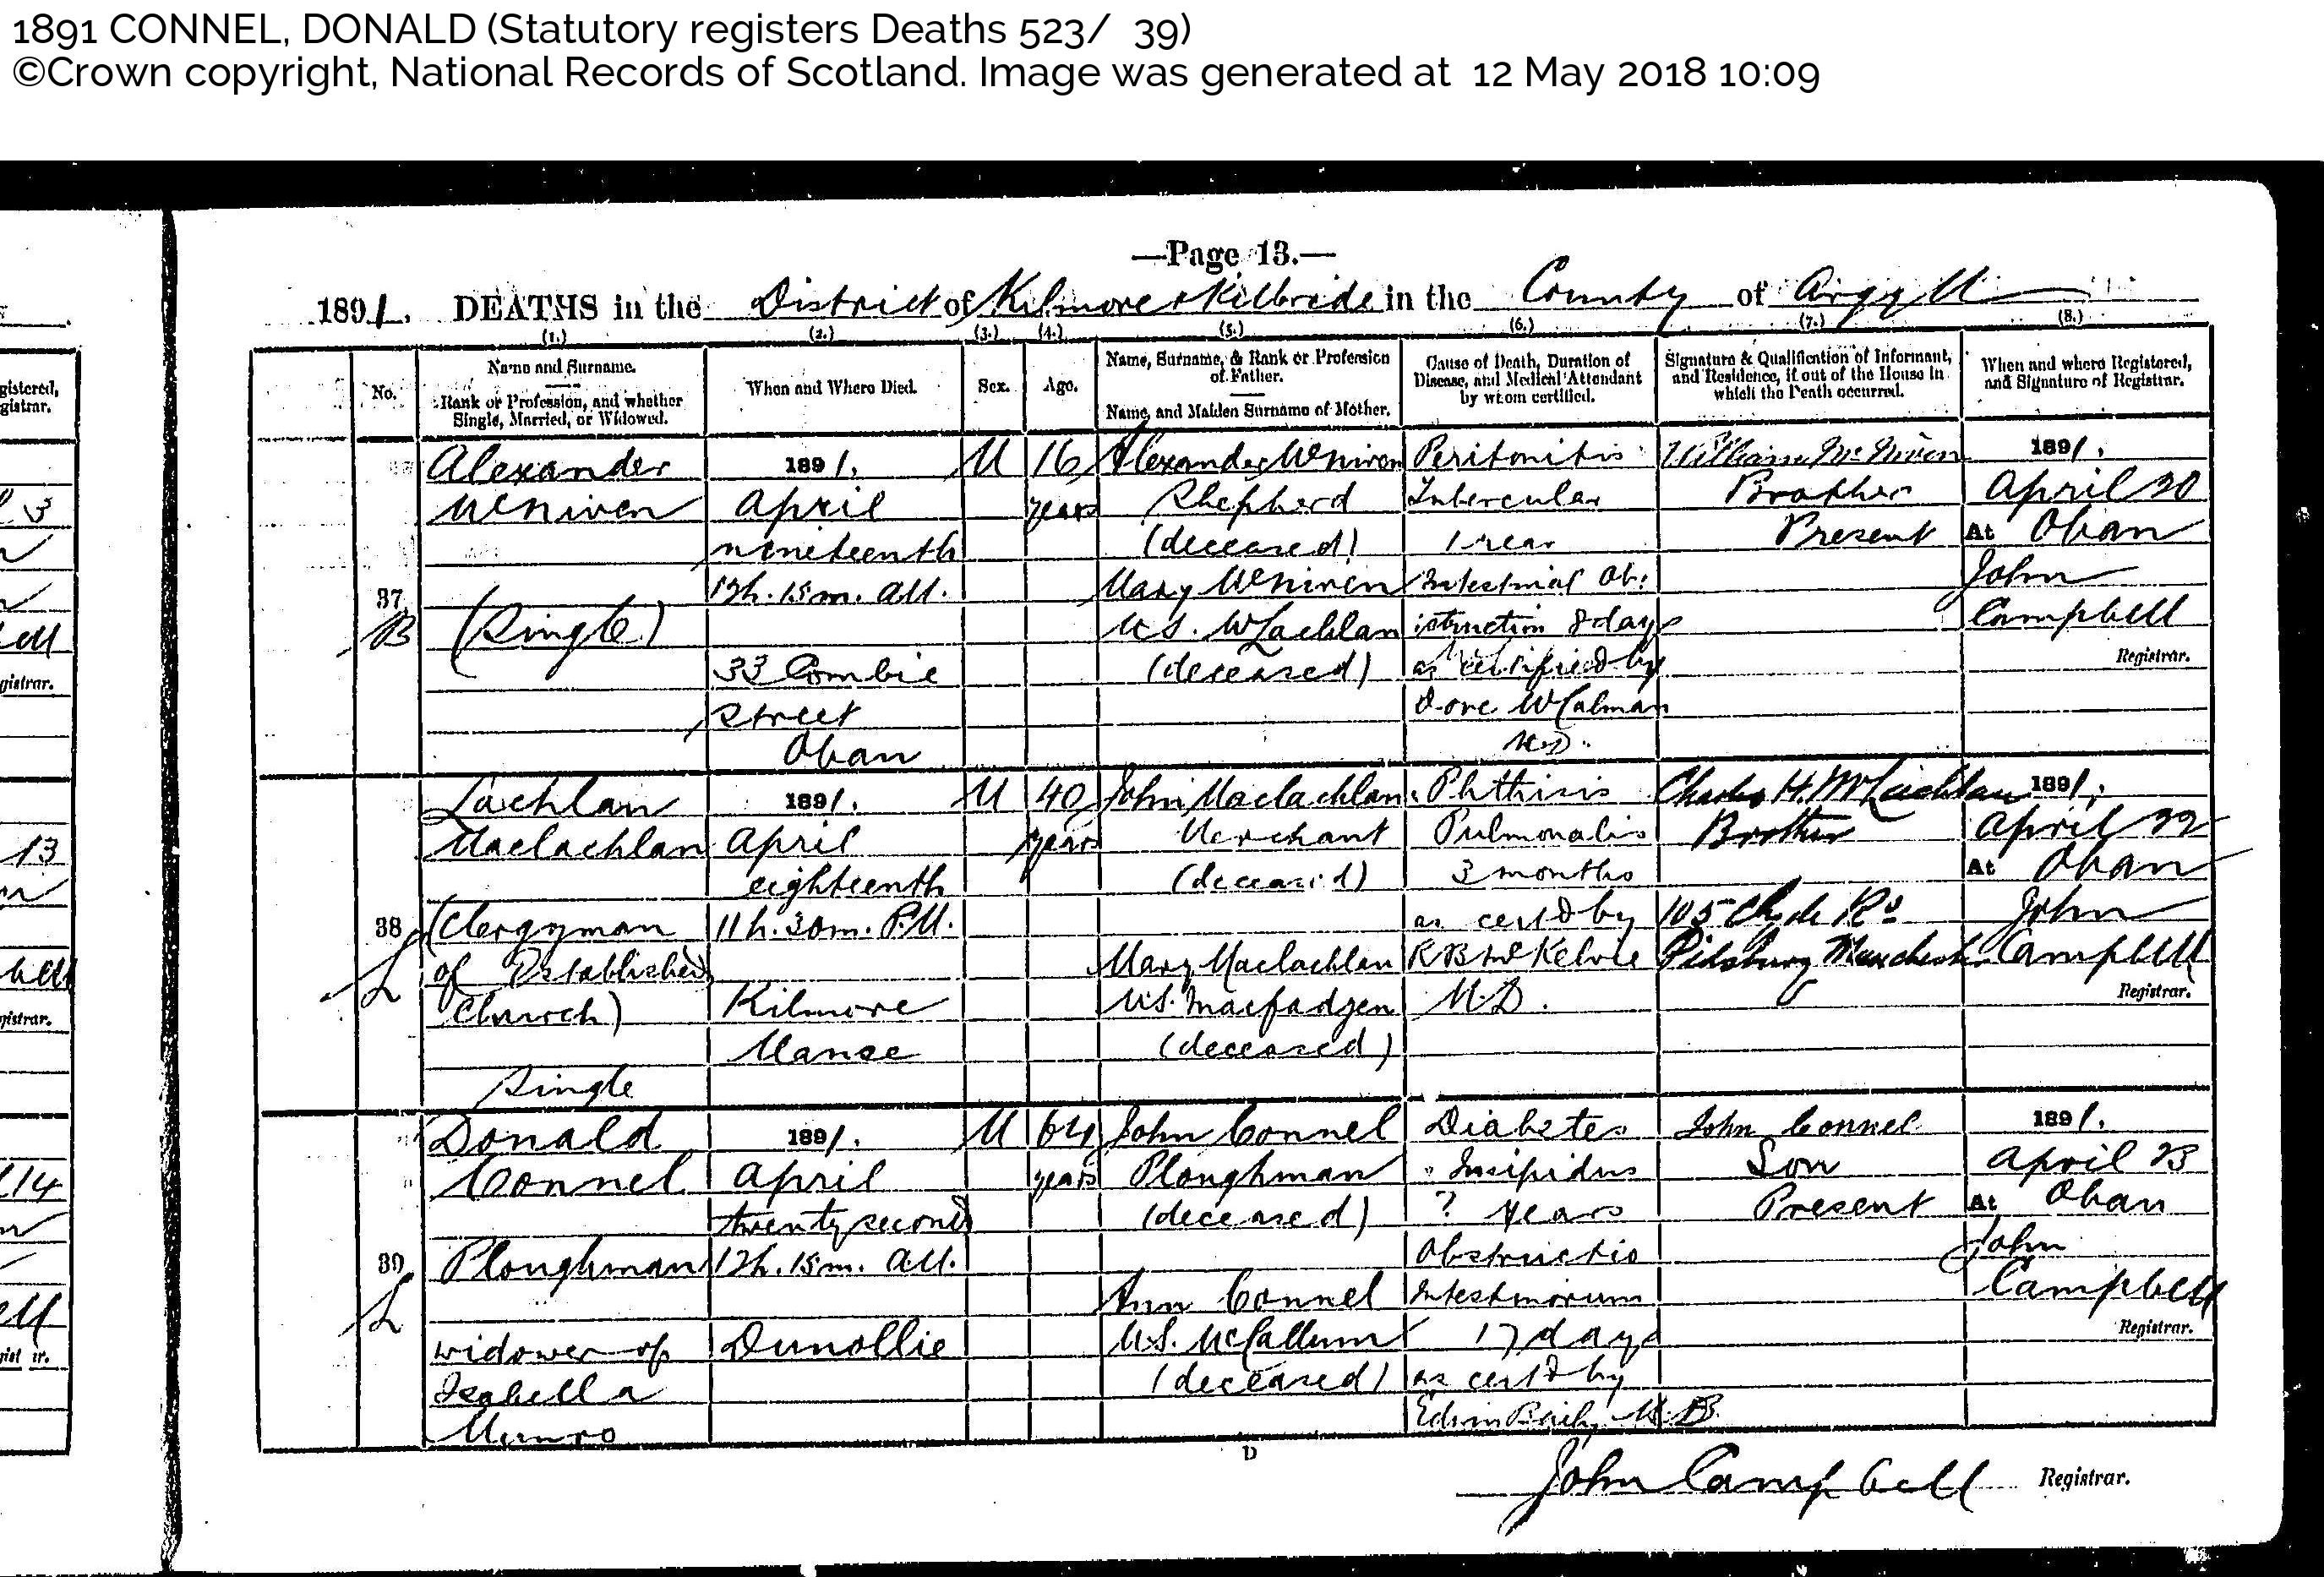 1891 CONNEL, DONALD (Statutory registers Deaths 523/ 39)
©Crown copyright, National Records of Scotland. Image was generated at 12 May 2018 10:09
—Page 13.—
1891. DEATHS in the District of Kilmore & Kilbride in the County of Argyll
(1.) (2.) (3.) (4.) (5.) (6.) (7.) (8.)
No.
Name and Surname.
Rank or Profession, and whether
Single, Married, or Widowed.
When and Where Died.
Sex.
Age.
Name, Surname, & Rank or Profession
of Father.
Name, and Maiden Surname of Mother.
Cause of Death, Duration of
Disease, and Medical Attendant
by whom certified.
Signature & Qualification of Informant,
and Residence, if out of the House in
which the Death occurred.
When and where Registered,
and Signature of Registrar.
37
B
Alexander
McNiven
(Single)
1891.
April
nineteenth
12h. 15m. AM.
33 Combie
Street
Oban
M
16
years
Alexander McNiven
Shepherd
(deceased)
Mary McNiven
M.S. McLachlan
(deceased)
Peritonitis
Tubercular
1 year
Intestinal Ob:
struction 8 days
as certified by
McCalman
M.D.
William McNiven
Brother
Present
1891.
April 20
At Oban
John
Campbell
Registrar.
38
L
Lachlan
Maclachlan
(Clergyman
of Established
Church)
Single
1891.
April
eighteenth
11h. 30m. P.M.
Kilmore
Manse
M
40
years
John Maclachlan
Merchant
(deceased)
Mary Maclachlan
M.S. Macfadyen
(deceased)
Phthisis
Pulmonalis
3 months
as certd by
R B McKelvie
M.D.
Charles H. McLachlan
Brother
105 Clyde Rd
Manchester
1891.
April 22
At Oban
John
Campbell
Registrar.
39
L
Donald
Connel
Ploughman
widower of
Isabella
Munro
1891.
April
twenty second
12h. 15m. AM.
Dunollie
M
64
years
John Connel
Ploughman
(deceased)
Ann Connel
M.S. McCallum
(deceased)
Diabetes
Insipidus
? years
Obstructio
Intestinorum
17 days
as certd by
M.B.
John Connel
Son
Present
1891.
April 23
At Oban
John
Campbell
Registrar.
D
John Campbell Registrar.